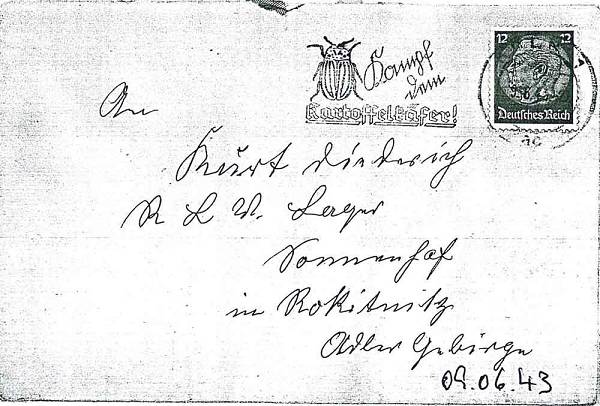 Kampf
dem
Kartoffelkäfer!
12 12
Deutsches Reich
An
Kurt Diederich
K L V. Lager
Sonnenhof
in Rokitnitz
Adler Gebirge
09.06.43